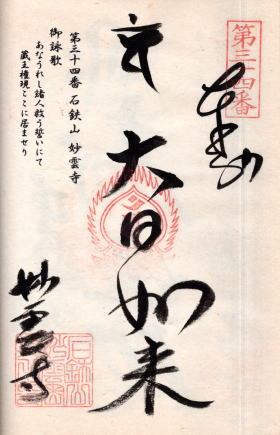 第三十四番
奉納
大日如来
妙雲寺
第三十四番 石鉄山 妙雲寺
御詠歌
あなうれし諸人救う誓いにて
蔵王権現ここに居ませり